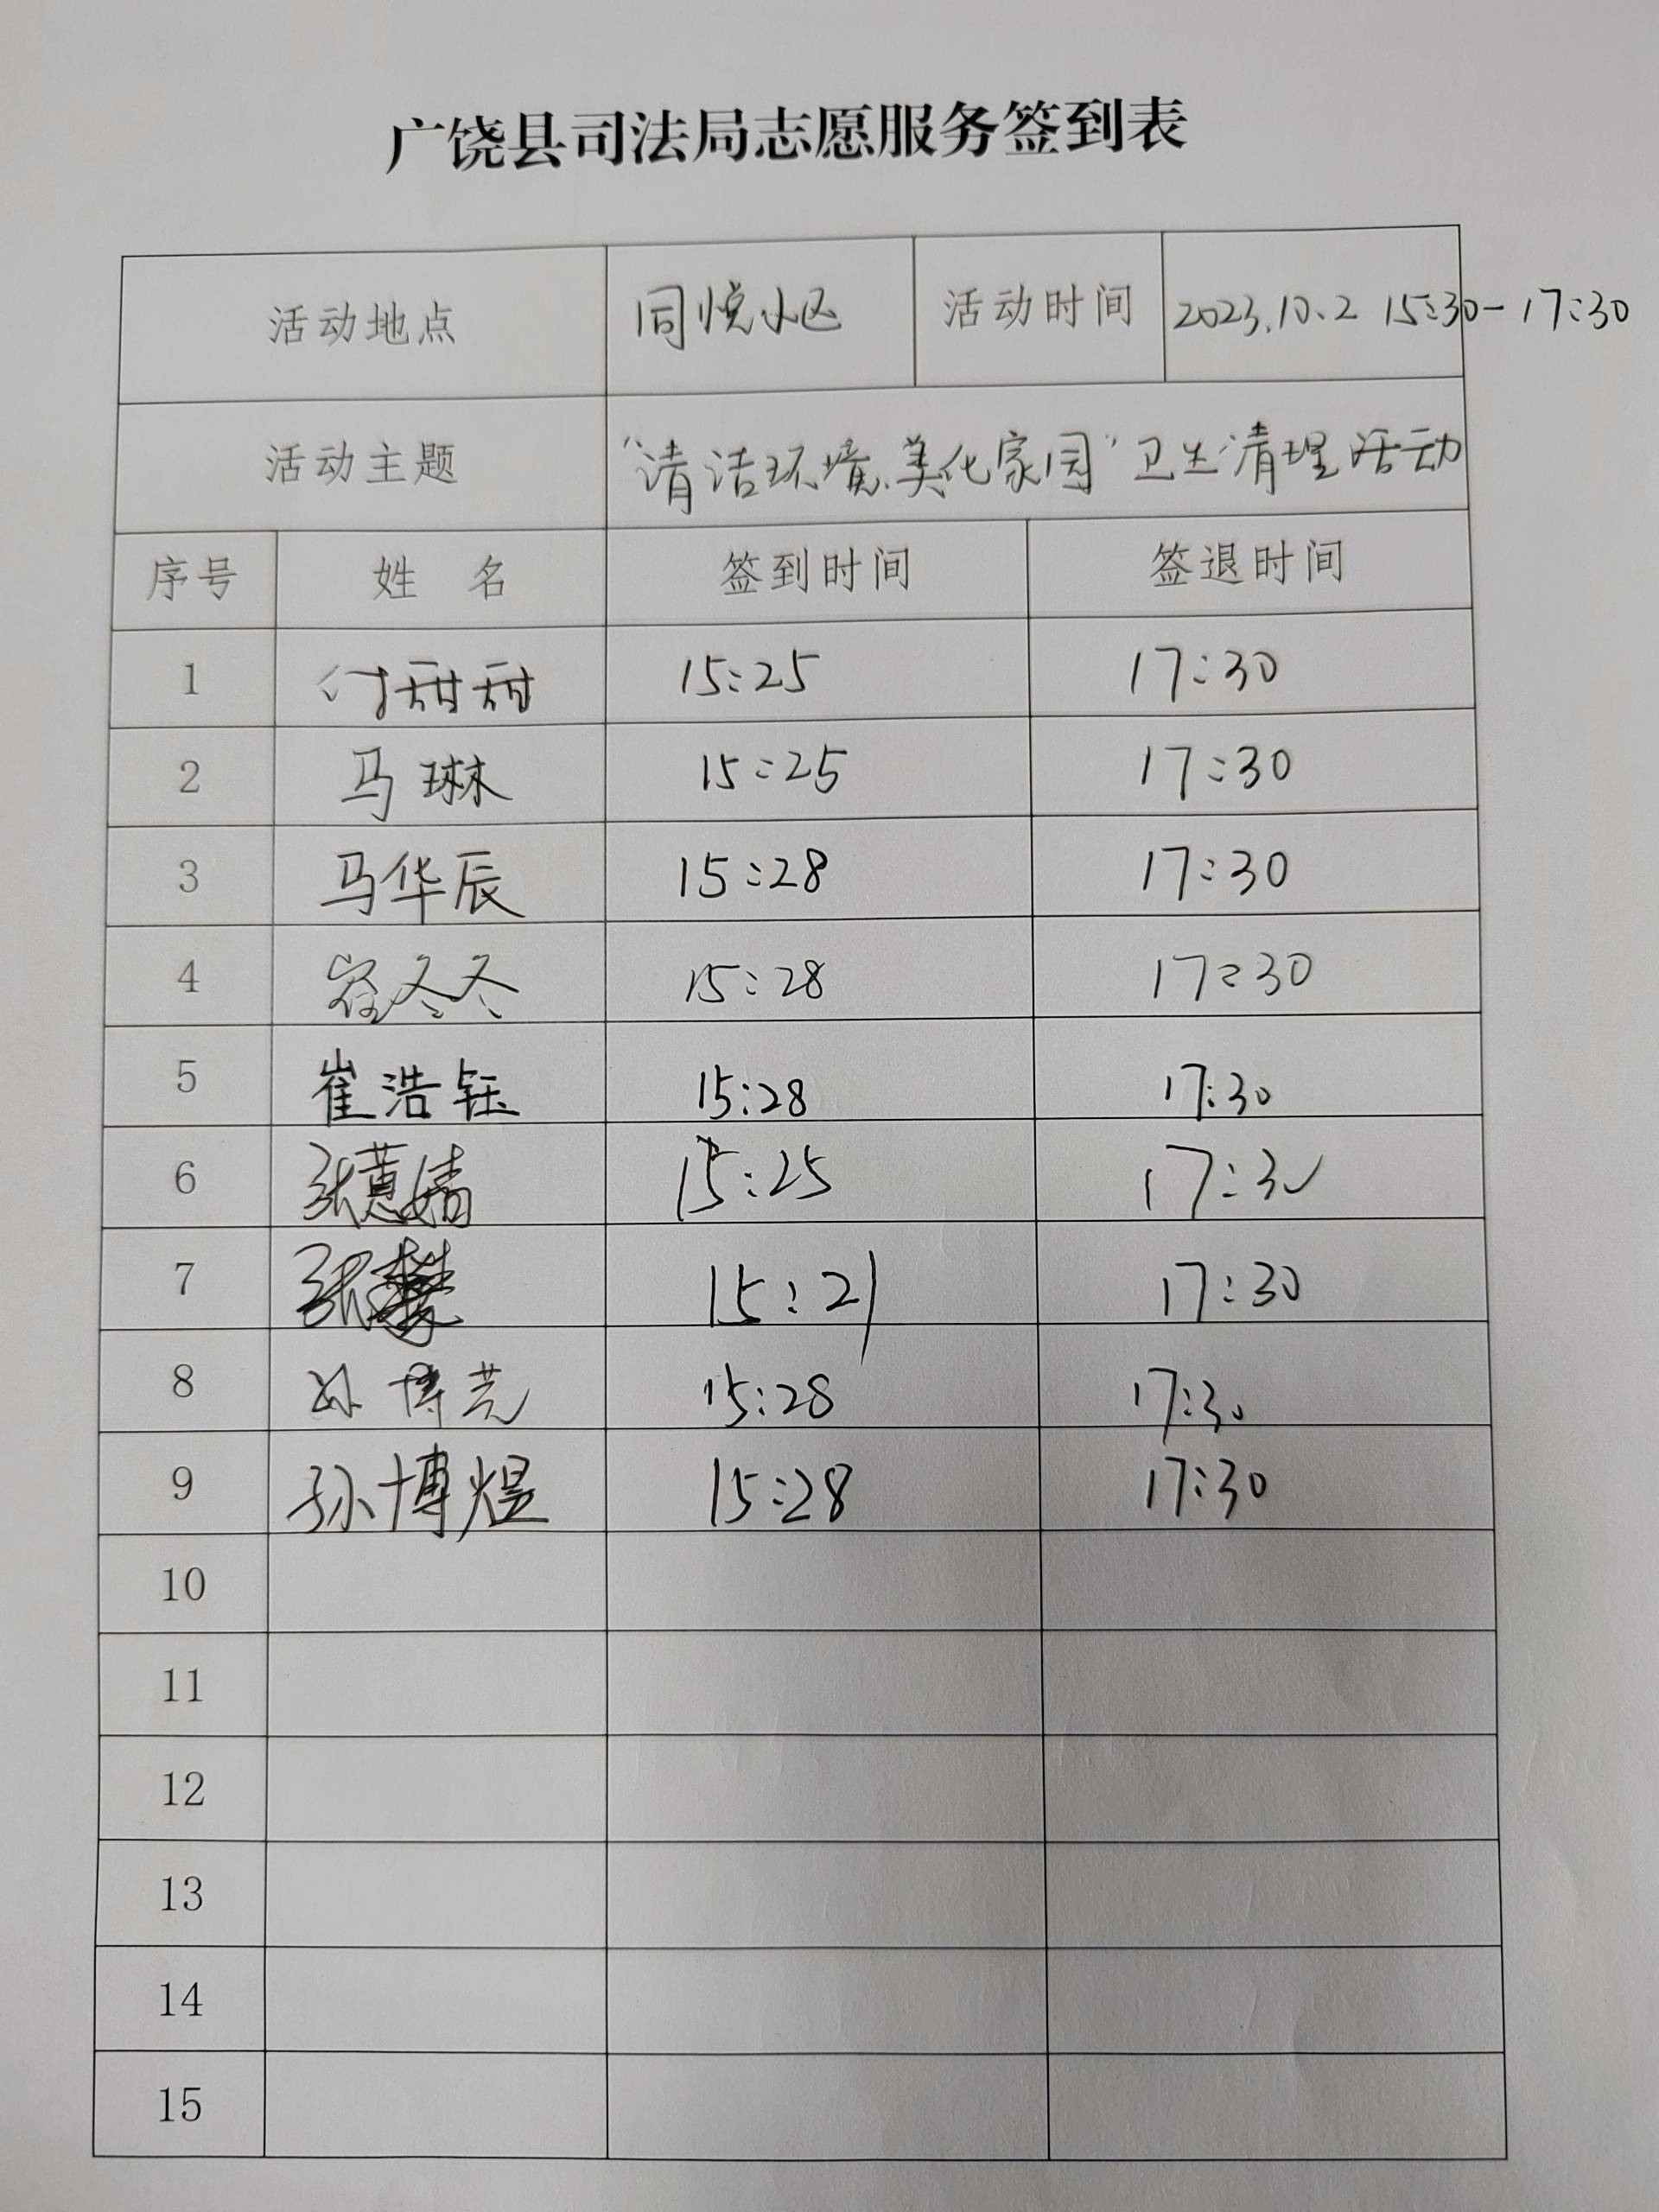 广饶县司法局志愿服务签到表
活动地点 同悦小区 活动时间 2023.10.2 15:30-17:30
活动主题 “清洁环境、美化家园”卫生清理活动
序号 姓名 签到时间 签退时间
1 付甜甜 15:25 17:30
2 马琳 15:25 17:30
3 马华辰 15:28 17:30
4 崔冬冬 15:28 17:30
5 崔浩钰 15:28 17:30
6 张蕙婧 15:25 17:30
7 张 15:21 17:30
8 孙博芸 15:28 17:30
9 孙博煜 15:28 17:30
10
11
12
13
14
15